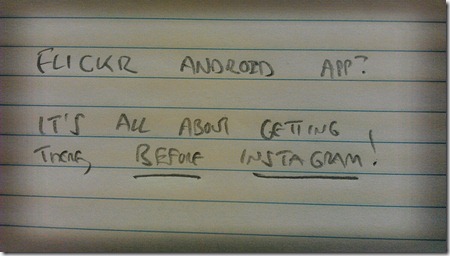 FLICKR ANDROID APP?
IT'S ALL ABOUT GETTING
THERE, BEFORE INSTAGRAM!